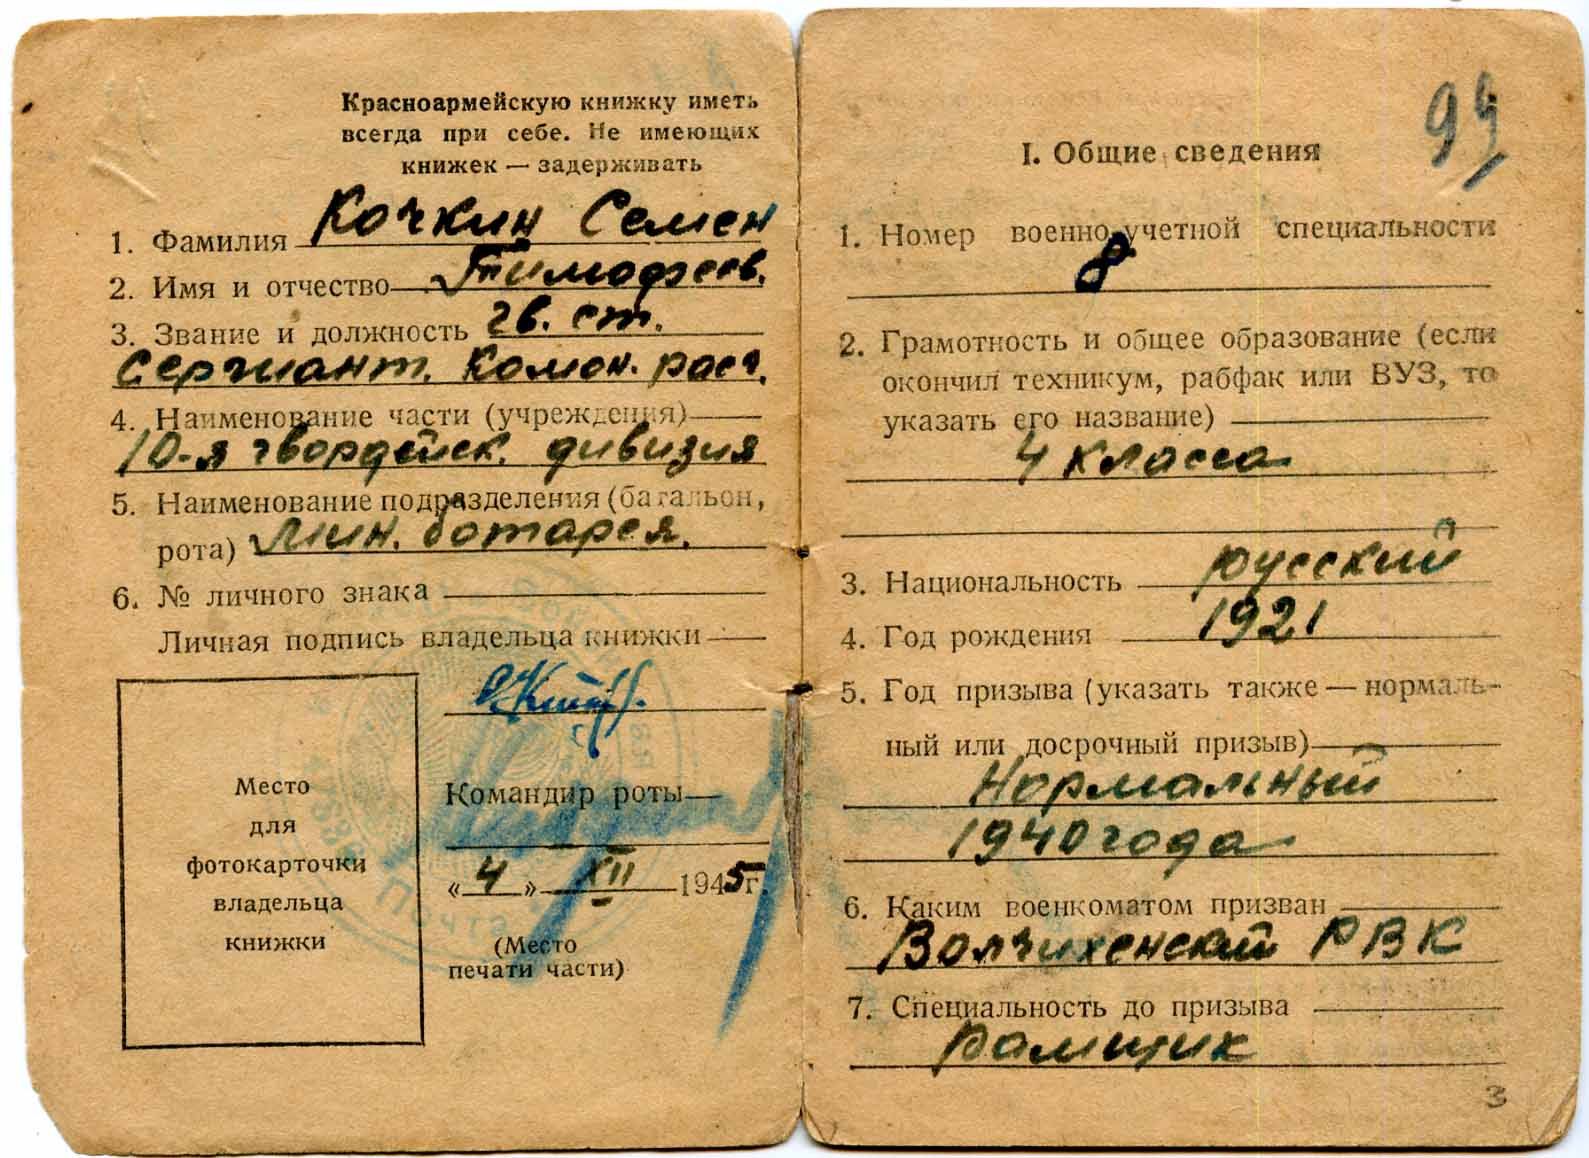 Красноармейскую книжку иметь
всегда при себе. Не имеющих
книжек — задерживать
1. Фамилия Кочкин Семен
2. Имя и отчество Тимофеев.
3. Звание и должность гв. ст.
Сержиант. Комон. расч.
4. Наименование части (учреждения)
10-я гвордейск. дивизия
5. Наименование подразделения (батальон,
рота) Мин. ботарея.
6. № личного знака
Личная подпись владельца книжки
Место
для
фотокарточки
владельца
книжки
Командир роты
«4» XII 1945г.
(Место
печати части)
94
I. Общие сведения
1. Номер военно-учетной специальности
8
2. Грамотность и общее образование (если
окончил техникум, рабфак или ВУЗ, то
указать его название)
4 класса
3. Национальность русский
4. Год рождения 1921
5. Год призыва (указать также — нормаль-
ный или досрочный призыв)
Нормальный
1940 года
6. Каким военкоматом призван
Волчихенский РВК
7. Специальность до призыва
Рамщик
3